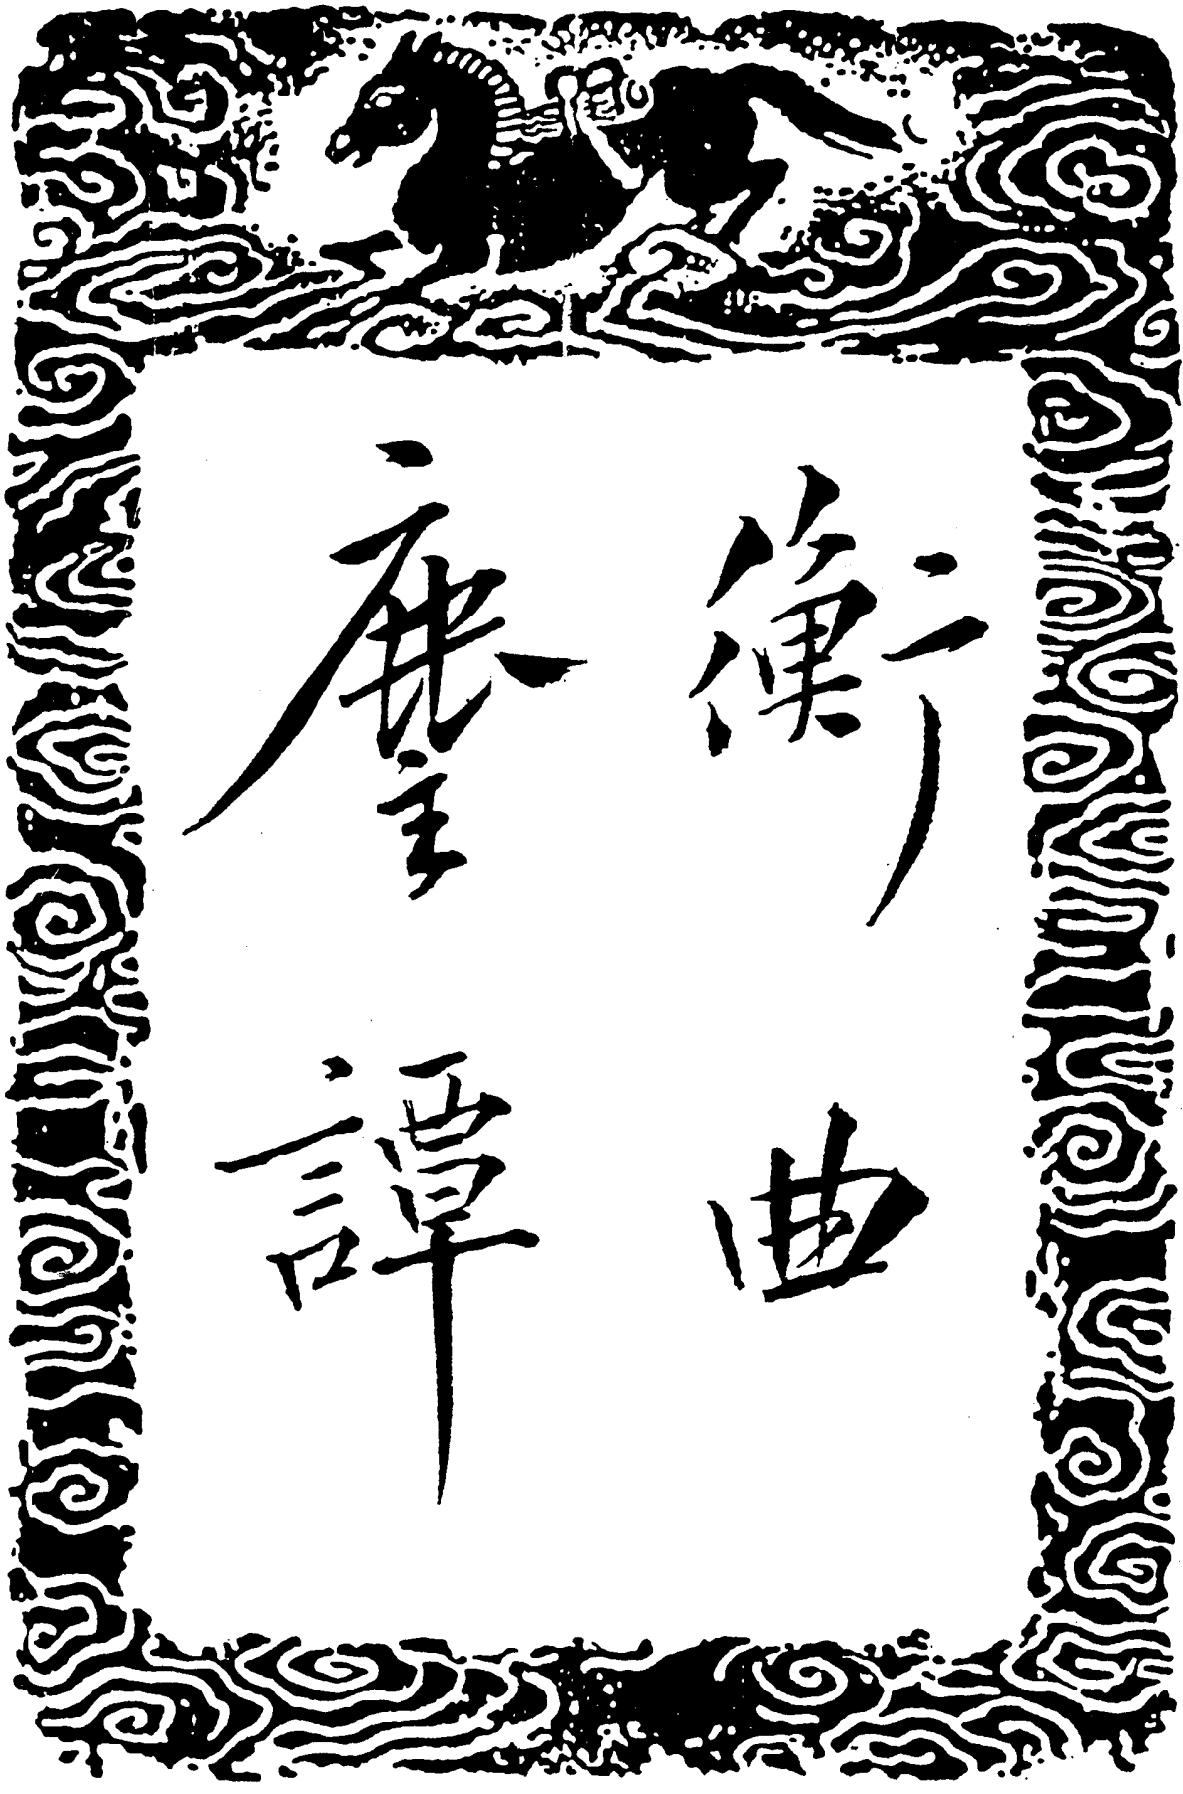 衡曲
麈譚